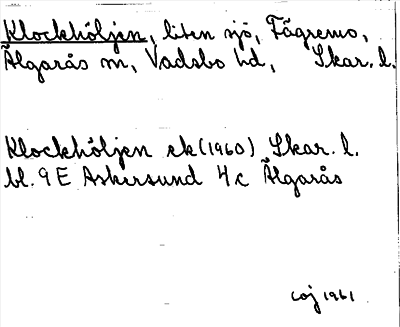 Klockhöljen, liten sjö, Fägremo,
Älgarås sn, Vadsbo hd, Skar. l.
Klockhöljen ek (1960) Skar. l.
bl. 9 E Askersund 4 c Älgarås
coj 1961